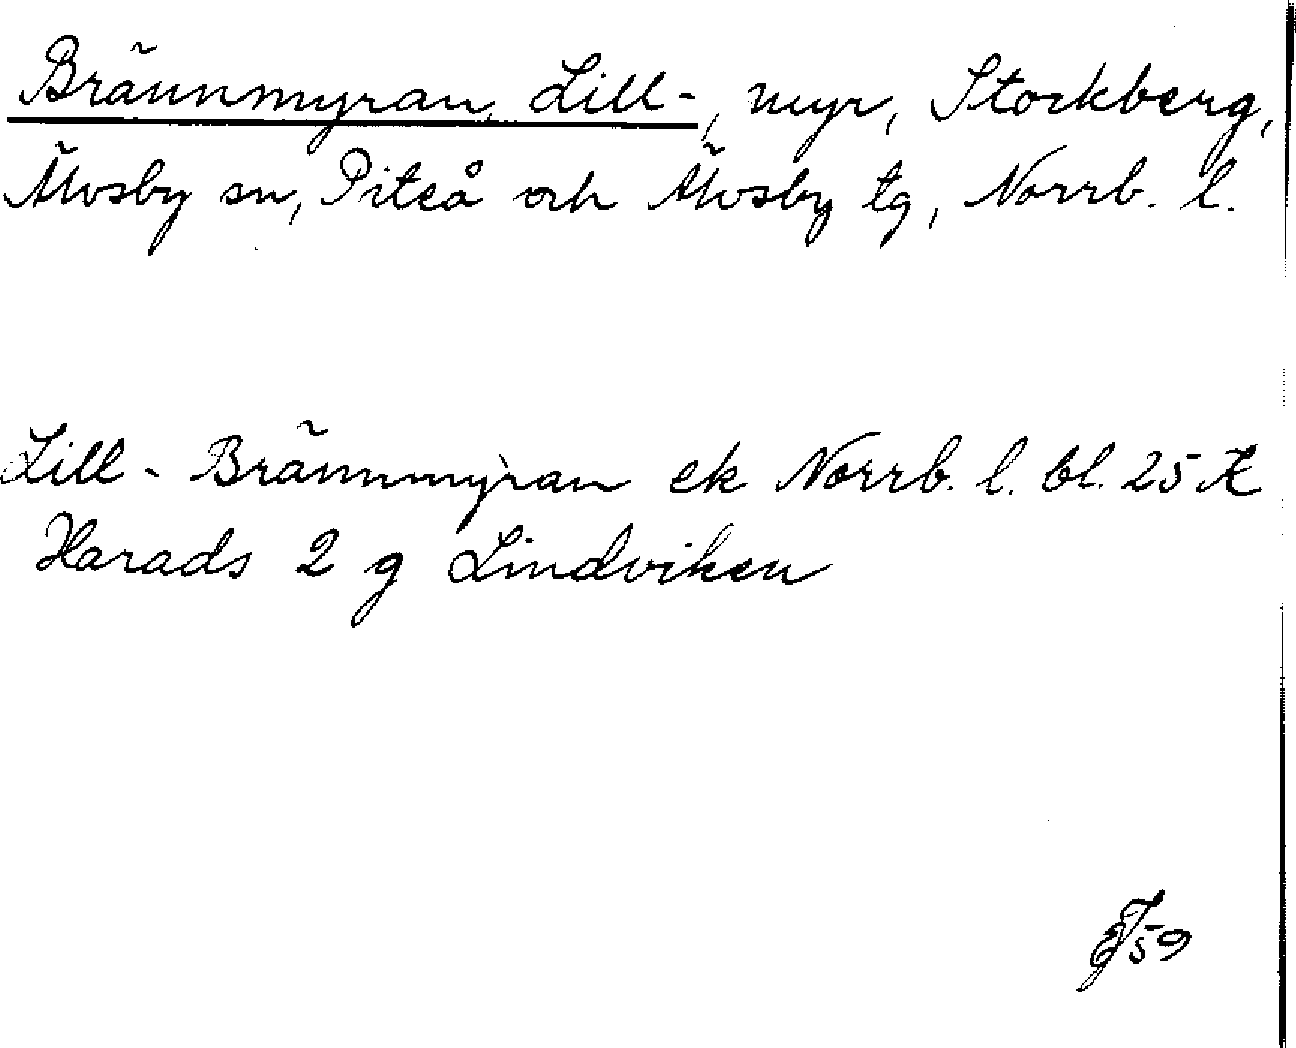 Brännmyran, Lill-, myr, Storkberg,
Älvsby sn, Piteå och Älvsby tg, Norrb. l.
Lill-Brännmyran ek Norrb. l. bl. 25 K
Harads 2 g Lindviken
59